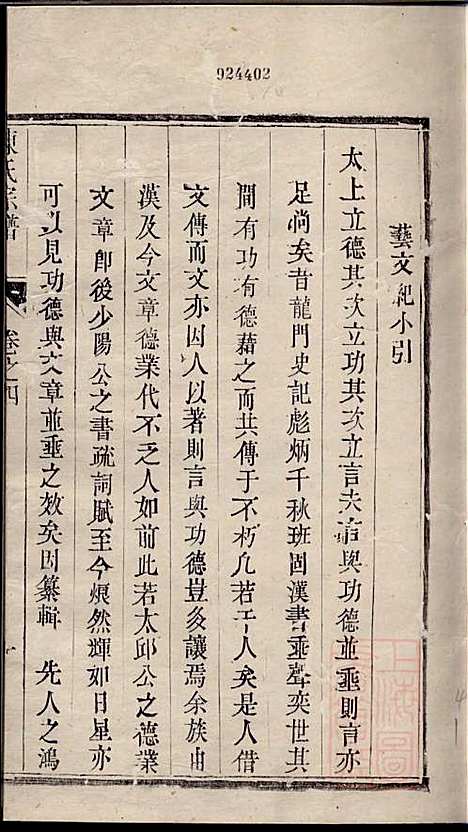 924402
藝文紀小引
太上立德其次立功其次立言夫言與功德並垂則言亦
足尚矣昔龍門史記彪炳千秋班固漢書垂聲奕世其
間有功有德藉之而共傳于不朽凡若干人矣是人借
文傳而文亦因人以著則言與功德豈多讓焉余族由
漢及今文章德業代不乏人如前此若太邱公之德業
文章即後少陽公之書疏詞賦至今煥然輝如日星亦
可以見功德與文章並垂之效矣因纂輯 先人之鴻
陳氏宗譜
卷之四
上海圖